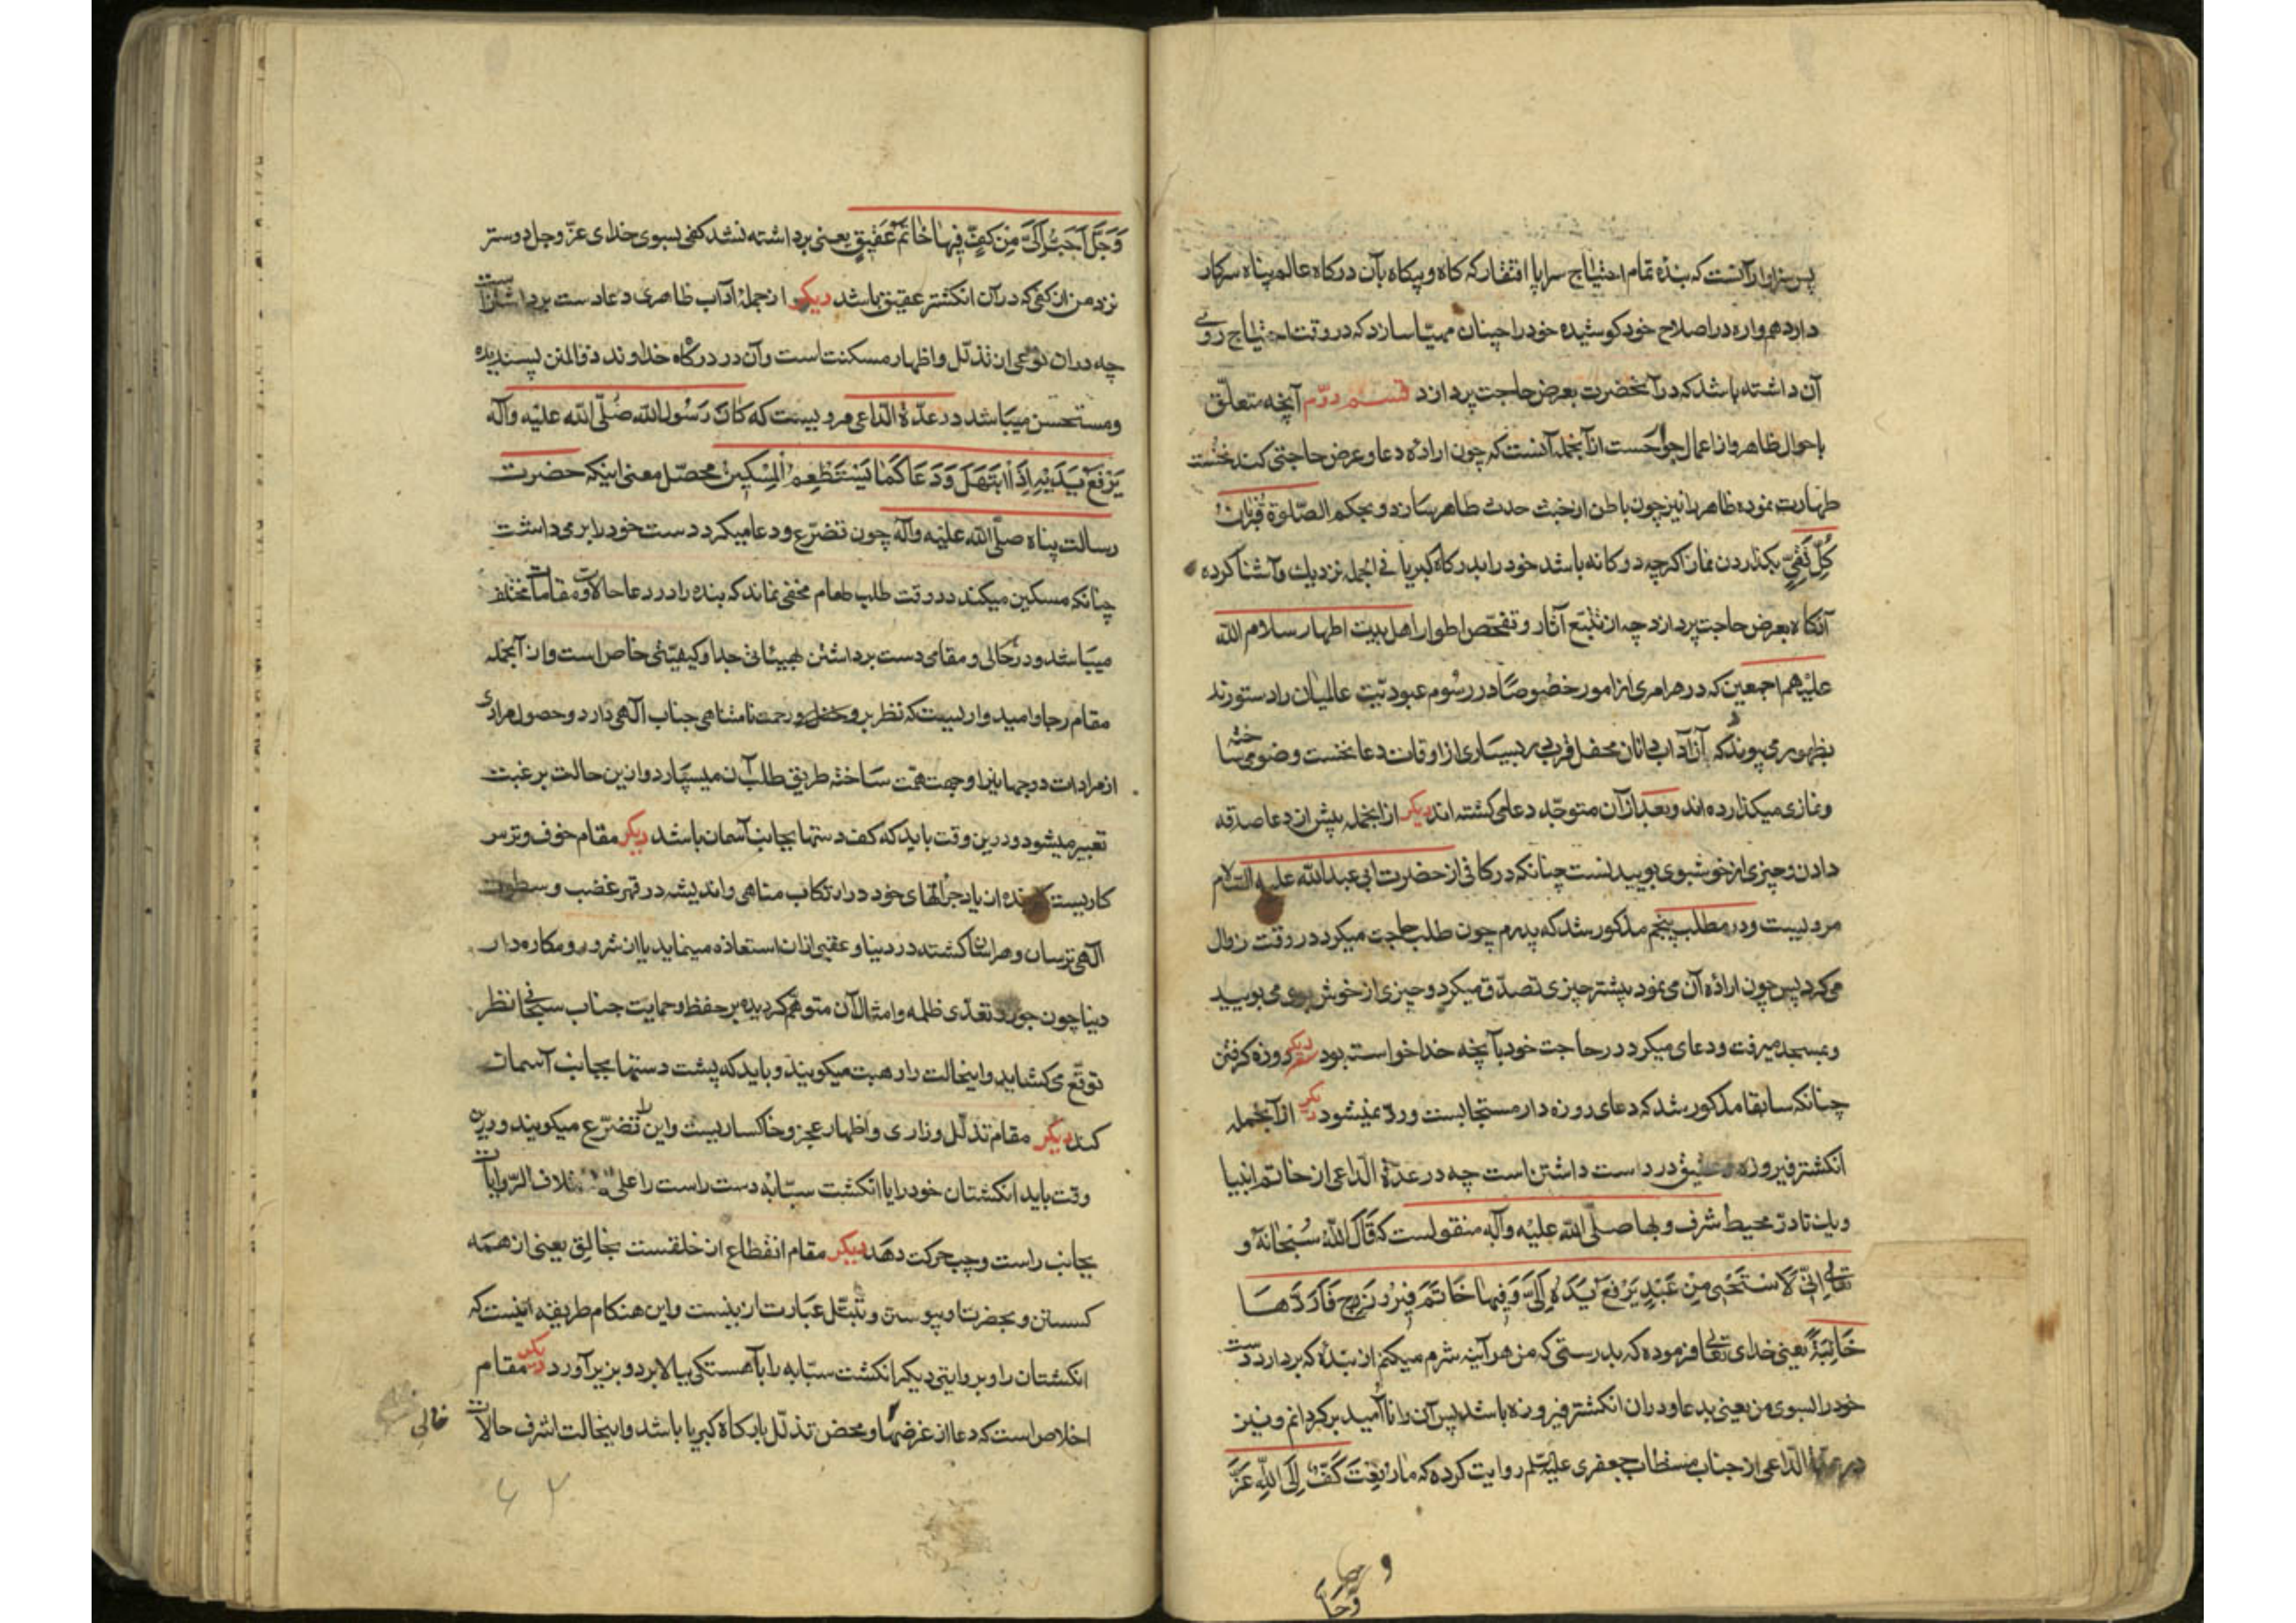 پس سزاوار آنست که بنده تمام احتیاج سراپا افتقار که کاه و بیکاه بآن درکاه عالم پناه سرکار
دارد همواره در اصلاح خود کوشیده خود را چنان مهیّا سازد که در وقت احتیاج روی
آن داشته باشد که در آنحضرت بعرض حاجت پردازد قسم دوّم آنچه متعلّق
باحوال ظاهر و از اعمال جوارحست از آنجمله آنست که چون اراده دعا و عرض حاجتی کند نخست
طهارت نموده ظاهر را نیز چون باطن از خبث حدث طاهر سازد و بحکم الصّلوة قُربانُ
كُلِّ تَقِيٍّ بکذاردن نماز اکرچه دوکانه باشد خود را بدرکاه کبریا فی الجمله نزدیك و آشنا کرده
آنکاه بعرض حاجت پردازد چه از تتبّع آثار و تفحّص اطوار اهل بیت اطهار سلام الله
علیهم اجمعین که در هر امری از امور خصُوصًا در رسُوم عبودیّت عالمیان را دستورند
بظهور می پیوندد که آن آداب دانان محفل قرب در بسیاری از اوقات دعا نخست وضو می ساخته
و نمازی میکذارده اند و بعد از آن متوجّه دعا می کشته اند دیکر از انجمله پیش از دعا صدقه
دادن و چیزی از خوشبوی بوییدنست چنانکه در کافی از حضرت ابی عبدالله علیه السّلام
مرویست و در مطلب پنجم مذکور شد که پدرم چون طلب حاجت میکرد در وقت زوال
می کرد پس چون ارادهٔ آن می نمود پیشتر چیزی تصدّق میکرد و چیزی از خوش بوی می بویید
و بمسجد میرفت و دعا می میکرد در حاجت خود بآنچه خدا خواسته بود دیکر روزه کرفتن
چنانکه سابقا مذکور شد که دعای روزه دار مستجابست و ردّ نمیشود دیکر از آنجمله
انکشتر فیروزه و عقیق در دست داشتن است چه در عدّة الدّاعی از خاتم انبیا
و یك تا درّ محیط شرف و بها صلّی الله علیه و آله منقولست که قَالَ اللهُ سُبْحَانَهُ وَ
تَعَالٰی إِنِّي لَاَسْتَحْيي مِنْ عَبْدٍ يَرْفَعُ يَدَهُ إِلَيَّ وَ فِيهَا خَاتَمُ فِيرُوزَجٍ فَاَرُدَّهَا
خَائِبَةً یعنی خدای تعالی فرموده که بدرستی که من هر آینه شرم میکنم از بنده که بردارد دست
خود را بسوی من یعنی بدعا و در ان انکشتر فیروزه باشد پس آن را ناامید برکردانم و نیز
در عدّة الدّاعی از جناب مستطاب جعفری علیه السلم روایت کرده که مَا رُفِعَتْ كَفٌّ إِلَى اللهِ عَزَّ
وَجَلَّ اَحَبُّ اِلَيَّ مِنْ كَفٍّ فِيهَا خَاتَمُ عَقِيقٍ یعنی برداشته نشد کفی بسوی خدای عزّ و جلّ دوستر
نزد من از کفی که در آن انکشتر عقیق باشد دیکر از جملهٔ آداب ظاهری دعا دست برداشتن است
چه در ان نوعی از تذلّل و اظهار مسکنت است و آن در درکاه خداوند ذوالمنن پسندیده
و مستحسن میباشد در عدّة الدّاعی مرویست که كَانَ رَسُولُ اللهِ صَلَّى الله علیه و آله
يَرْفَعُ يَدَيْهِ اِذَا ابْتَهَلَ وَ دَعَا كَمَا يَسْتَطْعِمُ الْمِسْكِينُ محصّل معنی اینکه حضرت
رسالت پناه صلّی الله علیه و آله چون تضرّع و دعا میکرد دست خود را برمی داشت
چنانکه مسکین میکند در وقت طلب طعام مخفی نماند که بنده را در دعا حالات و مقامات مختلف
میباشد و در حالی و مقامی دست برداشتن بهیئاتی جدا و کیفیّتی خاص است و از آنجمله
مقام رجا و امیدواریست که نظر بر و فضل و رحمت نامتناهی جناب آلهی دارد و حصول مرادی
از مرادات دو جهانیرا وجهت همّت ساخته طریق طلب آن میسپارد و از ین حالت برغبت
تعبیر میشود و درین وقت باید که کف دستها بجانب آسمان باشد دیکر مقام خوف و ترس
کاریست که بنده از یاد جرأتهای خود در ارتکاب مناهی و اندیشه در قهر و غضب و سطوت
آلهی ترسان و هراسان کشته در دنیا و عقبی از ان استعاذه مینماید یا از شرور و مکاره دار
دنیا چون جور و تعدّی ظلمه و امثال آن متوهّم کردیده بر حفظ و حمایت جناب سبحانی نظر
توقّع می کشاید و اینحالت را رهبت میکویند و باید که پشت دستها بجانب آسمان
کند دیکر مقام تذلّل و زاری و اظهار عجز و خاکساریست و این را تضرّع میکویند و درین
وقت باید انکشتان خود را یا انکشت سبّابهٔ دست راست را علی اختلاف الرّوایات
بجانب راست و چپ حرکت دهد دیکر مقام انقطاع از خلقست بخالق یعنی از همه
کسستن و بحضرت او پیوستن و تبتّل عبارت ازینست و این هنکام طریقه اینست که
انکشتان را و بروایتی دیکر انکشت سبّابه را بآهستکی ببالا برد و بزیر آورد دیکر مقام
اخلاص است که دعا از غرضها و محض تذلّل بدرکاه کبریا باشد و اینحالت اشرف حالات
خالی